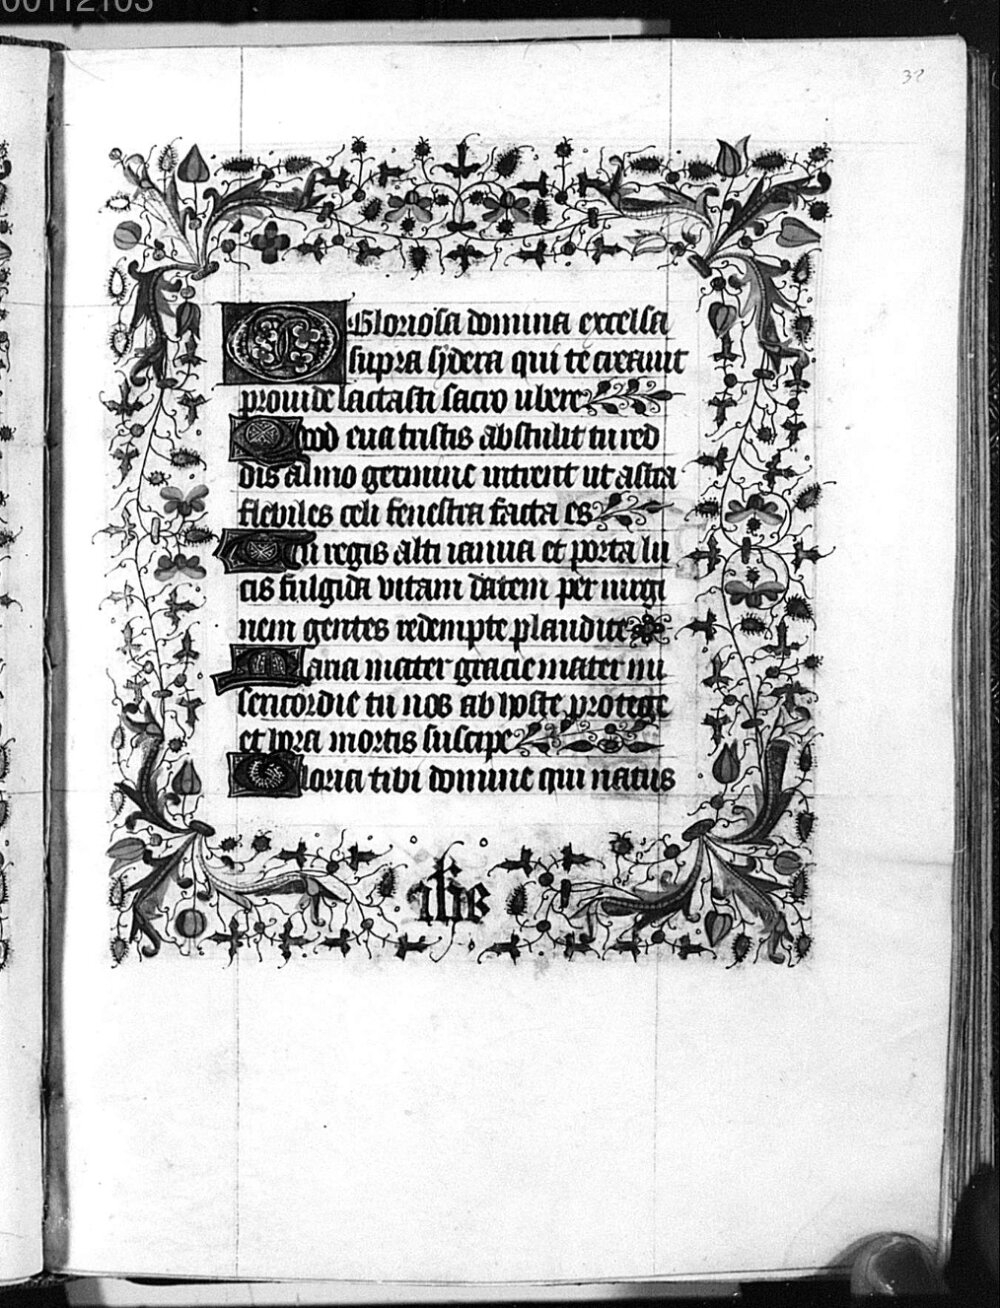 00112103
32
O Gloriosa domina excelsa
supra sydera qui te creauit
prouide lactasti sacro ubere
Quod eua tristis abstulit tu red
dis almo germine intrent ut astra
flebiles celi fenestra facta es
Tu regis alti ianua et porta lu
cis fulgida vitam datem per uirgi
nem gentes redempte plaudite
Maria mater gracie mater mi
sericordie tu nos ab hoste protege
et hora mortis suscipe
Gloria tibi domine qui natus
ihs